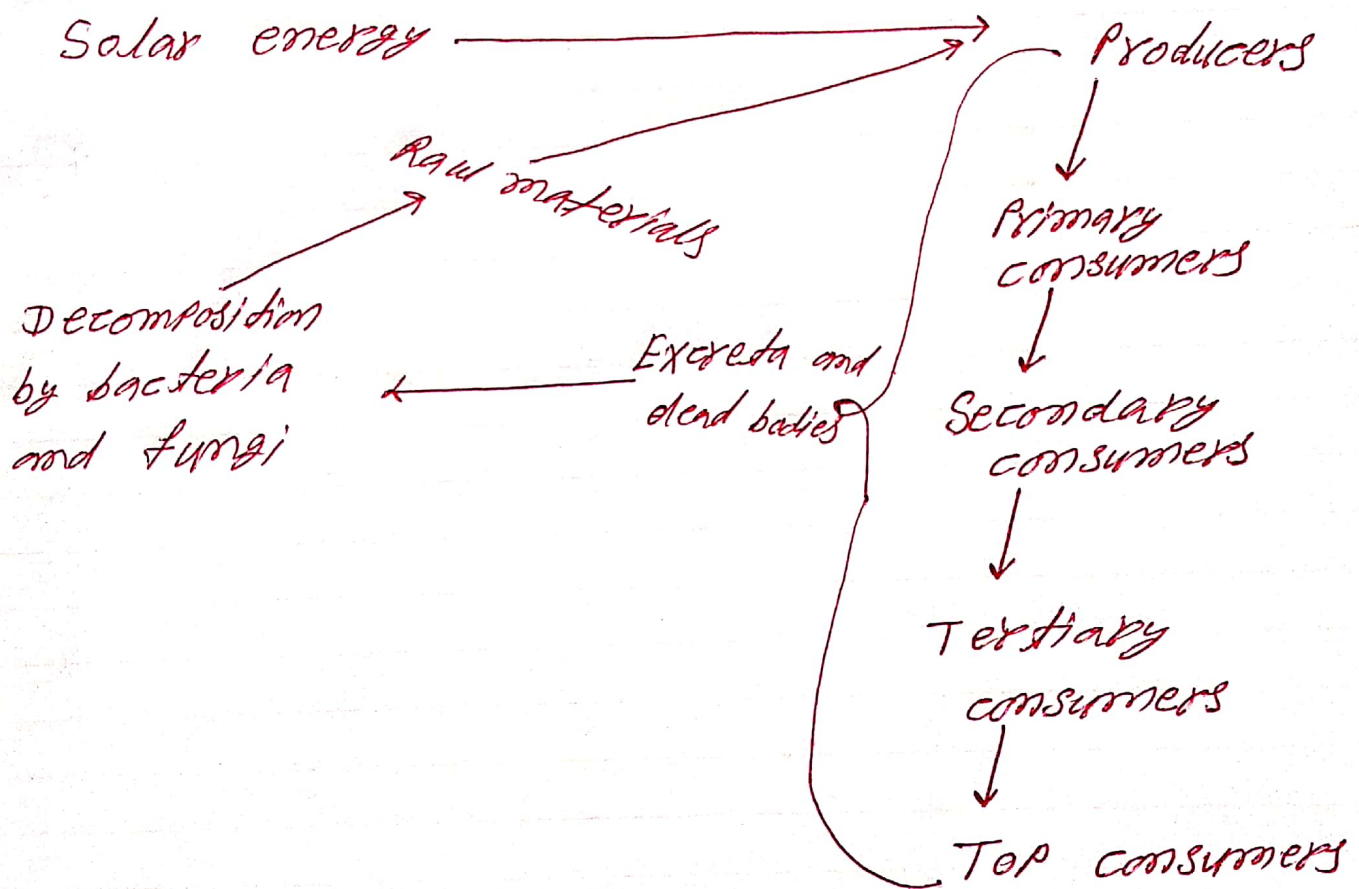 Solar energy
Producers
Raw materials
Primary
consumers
Decomposition
by bacteria
and fungi
Excreta and
dead bodies
Secondary
consumers
Tertiary
consumers
Top consumers